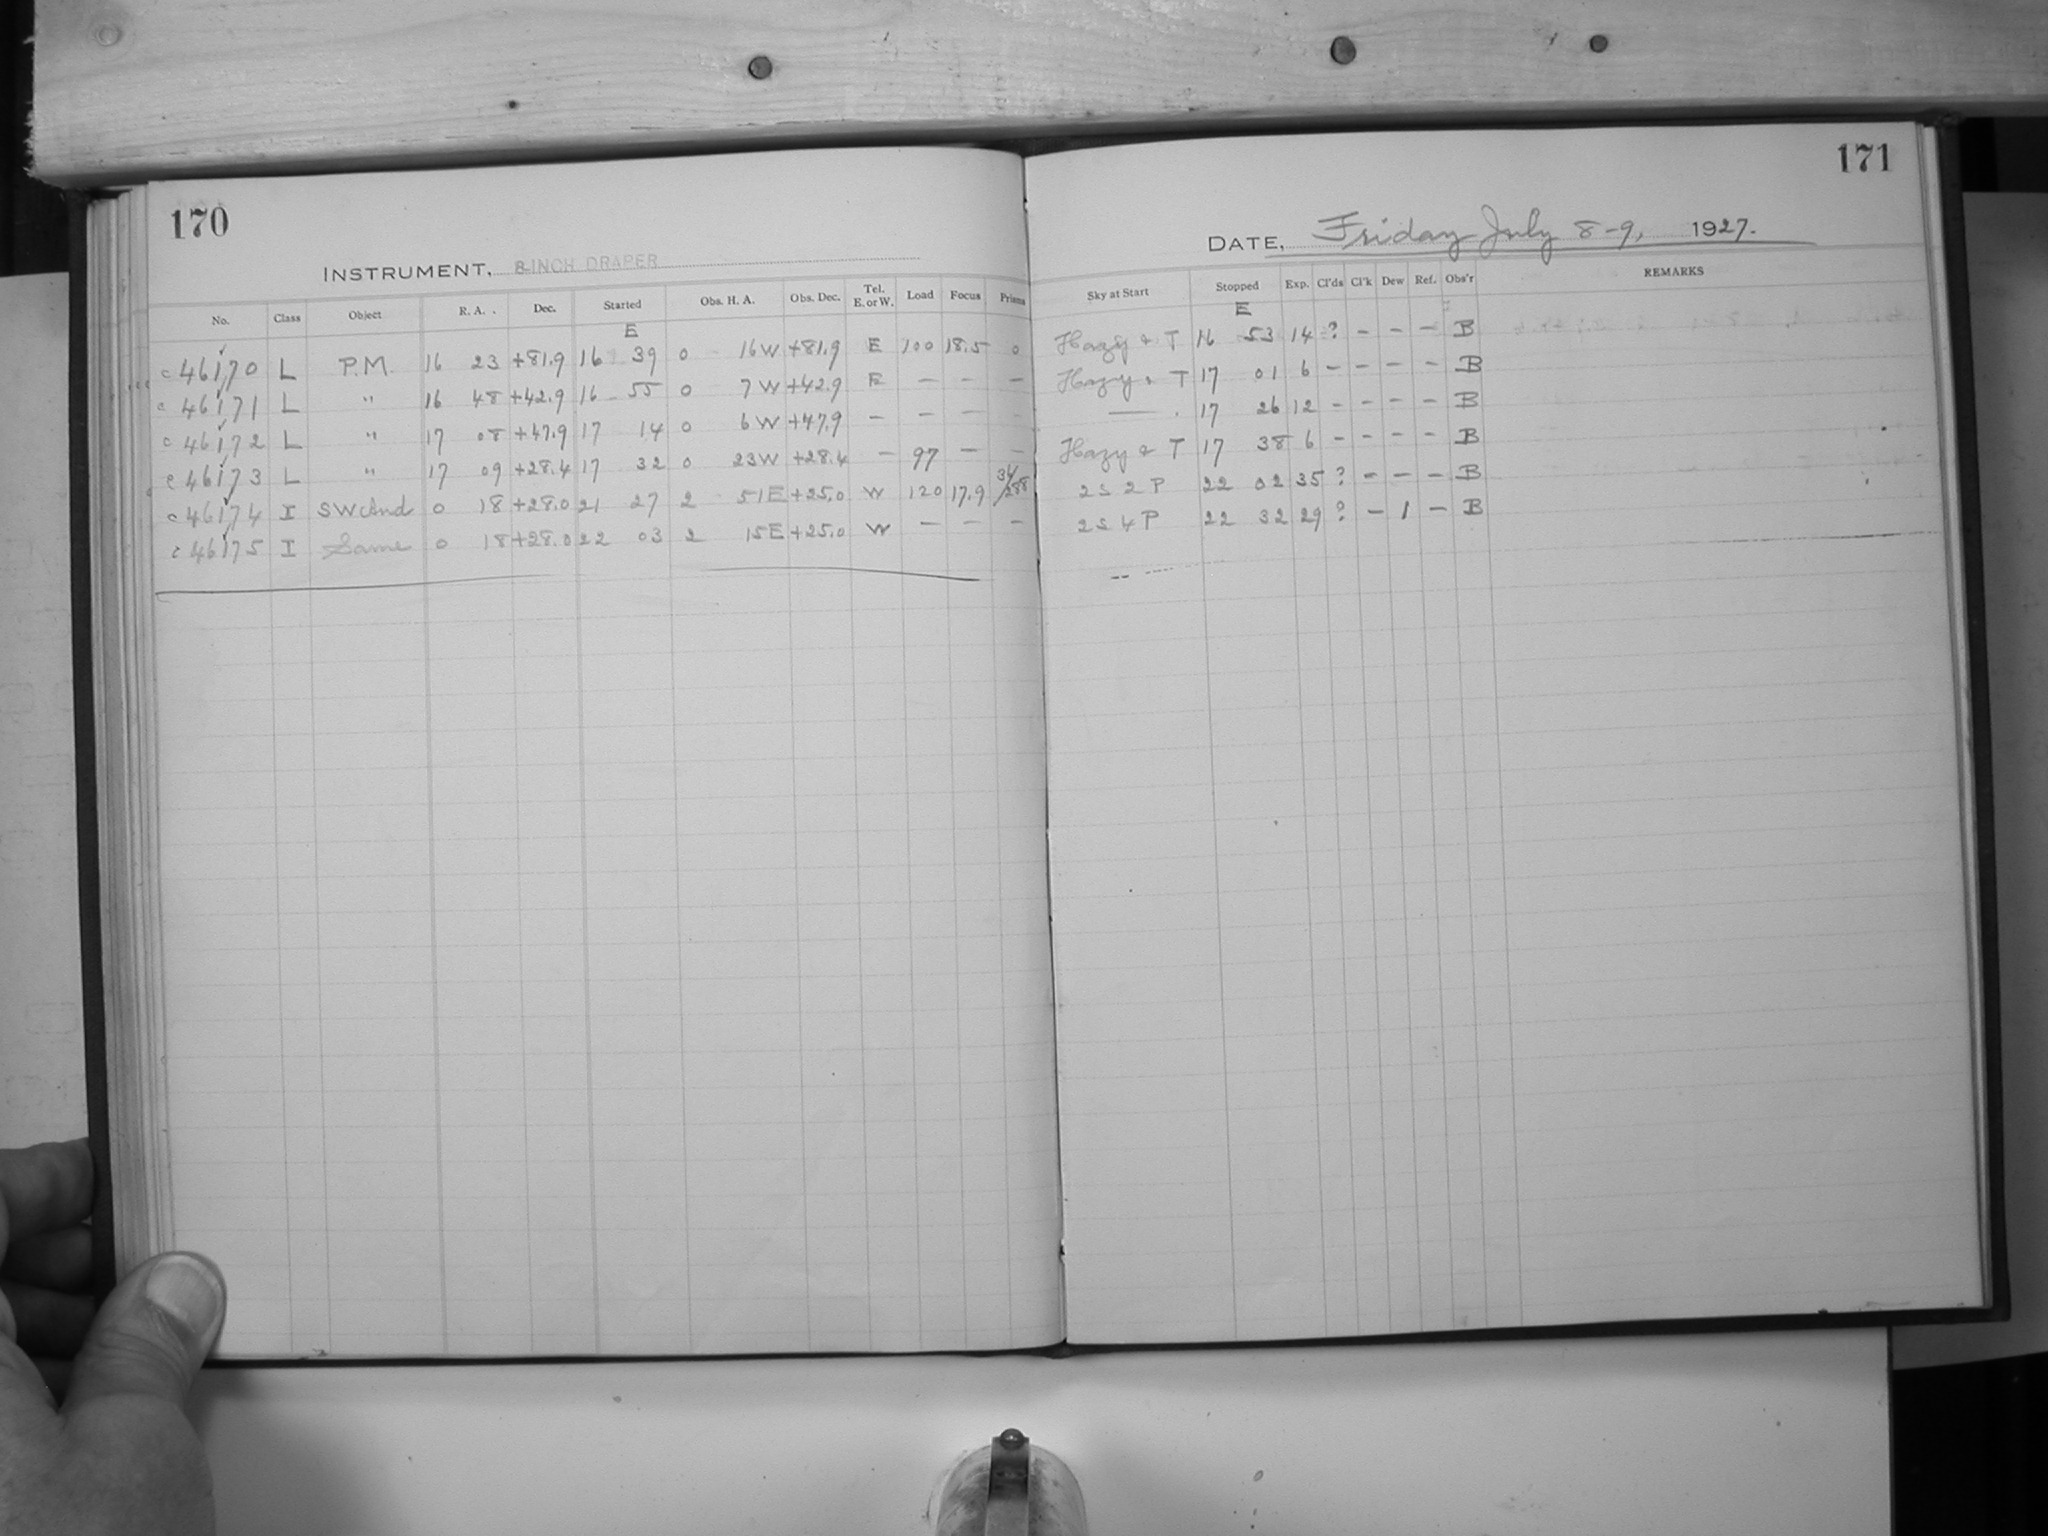 170
INSTRUMENT, 8-INCH DRAPER
No. Class Object R. A. Dec. Started Obs. H. A. Obs. Dec. Tel. E. or W. Load Focus Prisms
E
c 46170 L P.M. 16 23 +81.9 16 39 0 16W +81.9 E 100 18.5 0
c 46171 L " 16 48 +42.9 16 55 0 7W +42.9 E — — —
c 46172 L " 17 08 +47.9 17 14 0 6W +47.9 — — — —
c 46173 L " 17 09 +28.4 17 32 0 23W +28.4 — 97 — —
c 46174 I SW And 0 18 +28.0 21 27 2 51E +25.0 W 120 17.9
c 46175 I Same 0 18 +28.0 22 03 2 15E +25.0 W — — —
171
DATE, Friday July 8-9, 1927.
Sky at Start Stopped Exp. Cl'ds Cl'k Dew Ref. Obs'r REMARKS
E
Hazy & T 16 53 14 ? – – – B
Hazy & T 17 01 6 – – – – B
— 17 26 12 – – – – B
Hazy & T 17 38 6 – – – – B
2 S 2 P 22 02 35 ? – – – B
2 S 4 P 22 32 29 ? – 1 – B